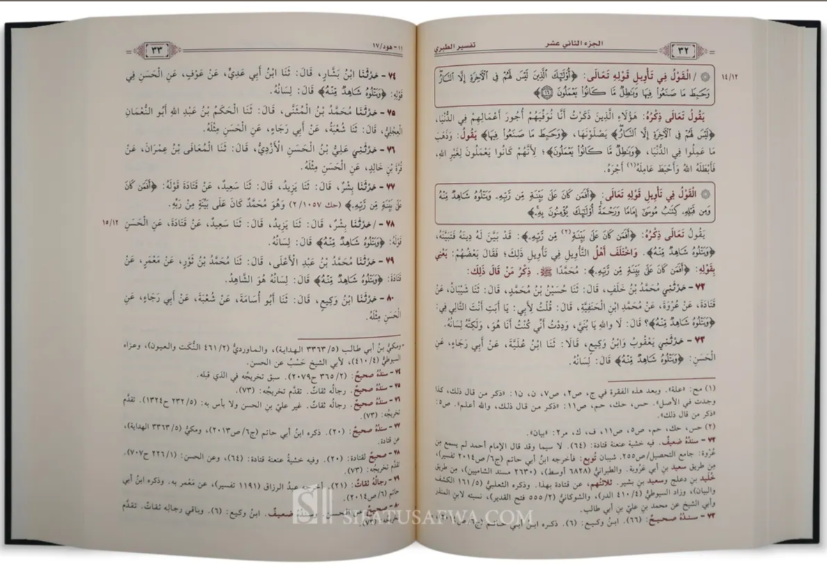 ٣٢
الجزء الثاني عشر
تفسير الطبري
١٤/١٢
/ الْقَوْلُ فِي تَأْوِيلِ قَوْلِهِ تَعَالَى: ﴿أُوْلَٰٓئِكَ ٱلَّذِينَ لَيْسَ لَهُمْ فِي ٱلْءَاخِرَةِ إِلَّا ٱلنَّارُ
وَحَبِطَ مَا صَنَعُوا۟ فِيهَا وَبَٰطِلٌ مَّا كَانُوا۟ يَعْمَلُونَ﴾
يَقُولُ تَعَالَى ذِكْرُهُ: هَؤُلَاءِ الَّذِينَ ذَكَرْتُ أَنَّا نُوَفِّيهِمْ أُجُورَ أَعْمَالِهِمْ فِي الدُّنْيَا،
﴿لَيْسَ لَهُمْ فِي ٱلْءَاخِرَةِ إِلَّا ٱلنَّارُ﴾ يَصْلَوْنَهَا، ﴿وَحَبِطَ مَا صَنَعُوا۟ فِيهَا﴾ يَقُولُ: وَذَهَبَ
مَا عَمِلُوا فِي الدُّنْيَا، ﴿وَبَٰطِلٌ مَّا كَانُوا۟ يَعْمَلُونَ﴾؛ لِأَنَّهُمْ كَانُوا يَعْمَلُونَ لِغَيْرِ اللهِ،
فَأَبْطَلَهُ اللهُ وَأَحْبَطَ عَامِلَهُ(١) أَجْرَهُ.
الْقَوْلُ فِي تَأْوِيلِ قَوْلِهِ تَعَالَى: ﴿أَفَمَن كَانَ عَلَىٰ بَيِّنَةٍ مِّن رَّبِّهِۦ وَيَتْلُوهُ شَاهِدٌ مِّنْهُ
وَمِن قَبْلِهِۦ كِتَٰبُ مُوسَىٰٓ إِمَامًا وَرَحْمَةً أُوْلَٰٓئِكَ يُؤْمِنُونَ بِهِۦ﴾
يَقُولُ تَعَالَى ذِكْرُهُ: ﴿أَفَمَن كَانَ عَلَىٰ بَيِّنَةٍ(٢) مِّن رَّبِّهِۦ﴾: قَدْ بَيَّنَ لَهُ دِينَهُ فَتَبَيَّنَهُ،
﴿وَيَتْلُوهُ شَاهِدٌ مِّنْهُ﴾. وَاخْتَلَفَ أَهْلُ التَّأْوِيلِ فِي تَأْوِيلِ ذَلِكَ، فَقَالَ بَعْضُهُمْ: يَعْنِي
بِقَوْلِهِ: ﴿أَفَمَن كَانَ عَلَىٰ بَيِّنَةٍ مِّن رَّبِّهِۦ﴾: مُحَمَّدًا ﷺ. ذِكْرُ مَنْ قَالَ ذَلِكَ:
٧٢ - حَدَّثَنِي مُحَمَّدُ بْنُ خَلَفٍ، قَالَ: ثَنَا حُسَيْنُ بْنُ مُحَمَّدٍ، قَالَ: ثَنَا شَيْبَانُ، عَنْ
قَتَادَةَ، عَنْ عُرْوَةَ، عَنْ مُحَمَّدِ ابْنِ الْحَنَفِيَّةِ، قَالَ: قُلْتُ لِأَبِي: يَا أَبَتِ أَنْتَ التَّالِي فِي:
﴿وَيَتْلُوهُ شَاهِدٌ مِّنْهُ﴾؟ قَالَ: لَا وَاللهِ يَا بُنَيَّ، وَدِدْتُ أَنِّي كُنْتُ أَنَا هُوَ، وَلَكِنَّهُ لِسَانُهُ.
٧٣ - حَدَّثَنِي يَعْقُوبُ وَابْنُ وَكِيعٍ، قَالَا: ثَنَا ابْنُ عُلَيَّةَ، عَنْ أَبِي رَجَاءٍ، عَنِ
الْحَسَنِ: ﴿وَيَتْلُوهُ شَاهِدٌ مِّنْهُ﴾ قَالَ: لِسَانُهُ.
(١) مح: «عمله». وبعد هذه الفقرة في ج، ص٢، ص٧، ن، ن١: «ذكر من قال ذلك، كذا
وجدت في الأصل». حس، حك، حم، ص١١: «ذكر من قال ذلك، والله أعلم». ص٥:
«ذكر من قال ذلك».
(٢) حس، حك، حم، ص٥، ص١١، ف، ك، مر٢: «بيان».
٧٢ - سنده ضعيف. فيه خشية عنعنة قتادة: (٦٤). لا سيما وقد قال الإمام أحمد لم يسمع من
عروة: جامع التحصيل/ص٢٥٥. شيبان تُوبع: فأخرجه ابنُ أبي حاتم (ج٦/ص٢٠١٤ تفسير)،
من طريق سعيد بن أبي عروبة. والطبراني (٦٨٢٨ أوسط)، (٢٦٣٠ مسند الشاميين)، من طريق
خليد بن دعلج وسعيد بن بشير. ثلاثتهم، عن قتادة بهذا. وذكره الثعلبي (١٦١/٥ الكشف
والبيان)، وزاد السيوطيُّ (٤١٠/٤ الدر)، والشوكاني (٥٥٥/٢ فتح القدير)، نسبته لابن المنذر
وأبي الشيخ عن محمد بن علي بن أبي طالب.
٧٣ - سنده صحيح: (٦٦). ابنُ وكيع: (٦). ذكره ابن أبي حاتم (ج٦/ص
١١ - هود/١٧
٣٣
٧٤ - حَدَّثَنَا ابْنُ بَشَّارٍ، قَالَ: ثَنَا ابْنُ أَبِي عَدِيٍّ، عَنْ عَوْفٍ، عَنِ الْحَسَنِ فِي
قَوْلِهِ: ﴿وَيَتْلُوهُ شَاهِدٌ مِّنْهُ﴾ قَالَ: لِسَانُهُ.
٧٥ - حَدَّثَنَا مُحَمَّدُ بْنُ الْمُثَنَّى، قَالَ: ثَنَا الْحَكَمُ بْنُ عَبْدِ اللهِ أَبُو النُّعْمَانِ
الْعِجْلِيُّ، قَالَ: ثَنَا شُعْبَةُ، عَنْ أَبِي رَجَاءٍ، عَنِ الْحَسَنِ مِثْلَهُ.
٧٦ - حَدَّثَنِي عَلِيُّ بْنُ الْحَسَنِ الْأَزْدِيُّ، قَالَ: ثَنَا الْمُعَافَى بْنُ عِمْرَانَ، عَنْ
قُرَّةَ بْنِ خَالِدٍ، عَنِ الْحَسَنِ مِثْلَهُ.
٧٧ - حَدَّثَنَا بِشْرٌ، قَالَ: ثَنَا يَزِيدُ، قَالَ: ثَنَا سَعِيدٌ، عَنْ قَتَادَةَ قَوْلَهُ: ﴿أَفَمَن كَانَ
عَلَىٰ بَيِّنَةٍ مِّن رَّبِّهِۦ﴾ (حك ٢/١٠٥٧) وَهُوَ مُحَمَّدٌ كَانَ عَلَى بَيِّنَةٍ مِنْ رَبِّهِ.
١٥/١٢
٧٨ - / حَدَّثَنَا بِشْرٌ، قَالَ: ثَنَا يَزِيدُ، قَالَ: ثَنَا سَعِيدٌ، عَنْ قَتَادَةَ، عَنِ الْحَسَنِ
قَوْلَهُ: ﴿وَيَتْلُوهُ شَاهِدٌ مِّنْهُ﴾ قَالَ: لِسَانُهُ.
٧٩ - حَدَّثَنَا مُحَمَّدُ بْنُ عَبْدِ الْأَعْلَى، قَالَ: ثَنَا مُحَمَّدُ بْنُ ثَوْرٍ، عَنْ مَعْمَرٍ، عَنْ
قَتَادَةَ: ﴿وَيَتْلُوهُ شَاهِدٌ مِّنْهُ﴾ قَالَ: لِسَانُهُ هُوَ الشَّاهِدُ.
٨٠ - حَدَّثَنَا ابْنُ وَكِيعٍ، قَالَ: ثَنَا أَبُو أُسَامَةَ، عَنْ شُعْبَةَ، عَنْ أَبِي رَجَاءٍ، عَنِ
الْحَسَنِ مِثْلَهُ.
ومكيُّ بنُ أبي طالب (٣٣٦٣/٥ الهداية)، والماورديُّ (٤٦١/٢ النُّكت والعيون)، وعزاه
السيوطيُّ (٤١٠/٤)، لأبي الشيخ حَسْبُ عن الحسن.
٧٤ - سندُه صحيحٌ: (٣٦٥/٢ ح٢٠٧٩). سبق تخريجُه في الذي قبله.
٧٥ - سندُه صحيحٌ. رجالُه ثقاتٌ. تقدَّم تخريجُه: (٧٣).
٧٦ - سندُه صحيحٌ. رجالُه ثقاتٌ. غير عليِّ بن الحسن ولا بأس به: (٢٣٢/٥ ح١٣٢٤). تقدَّم
تخريجُه: (٧٣).
٧٧ - سندُه صحيحٌ: (٢٠). ذكره ابنُ أبي حاتم (ج٦/ص٢٠١٣)، ومكيُّ (٣٣٦٣/٥ الهداية)،
عن قتادة.
٧٨ - صحيحٌ لقتادة: (٢٠). وفيه خشيةُ عنعنة قتادة: (٦٤)، وعن الحسن: (٢٢٦/١ ح٧٠٧).
تقدَّم تخريجُه: (٧٣).
٧٩ - رجالُه ثقاتٌ: (٢١). عبدُ الرزاق (١١٩١ تفسير)، عن معْمَر به. وذكره ابنُ أبي
حاتم (ج٦/ص٢٠١٤).
ضعيفٌ. ابنُ وكيع: (٦). وباقي رجاله ثقاتٌ. تقدَّم
SIFATUSAFWA.COM